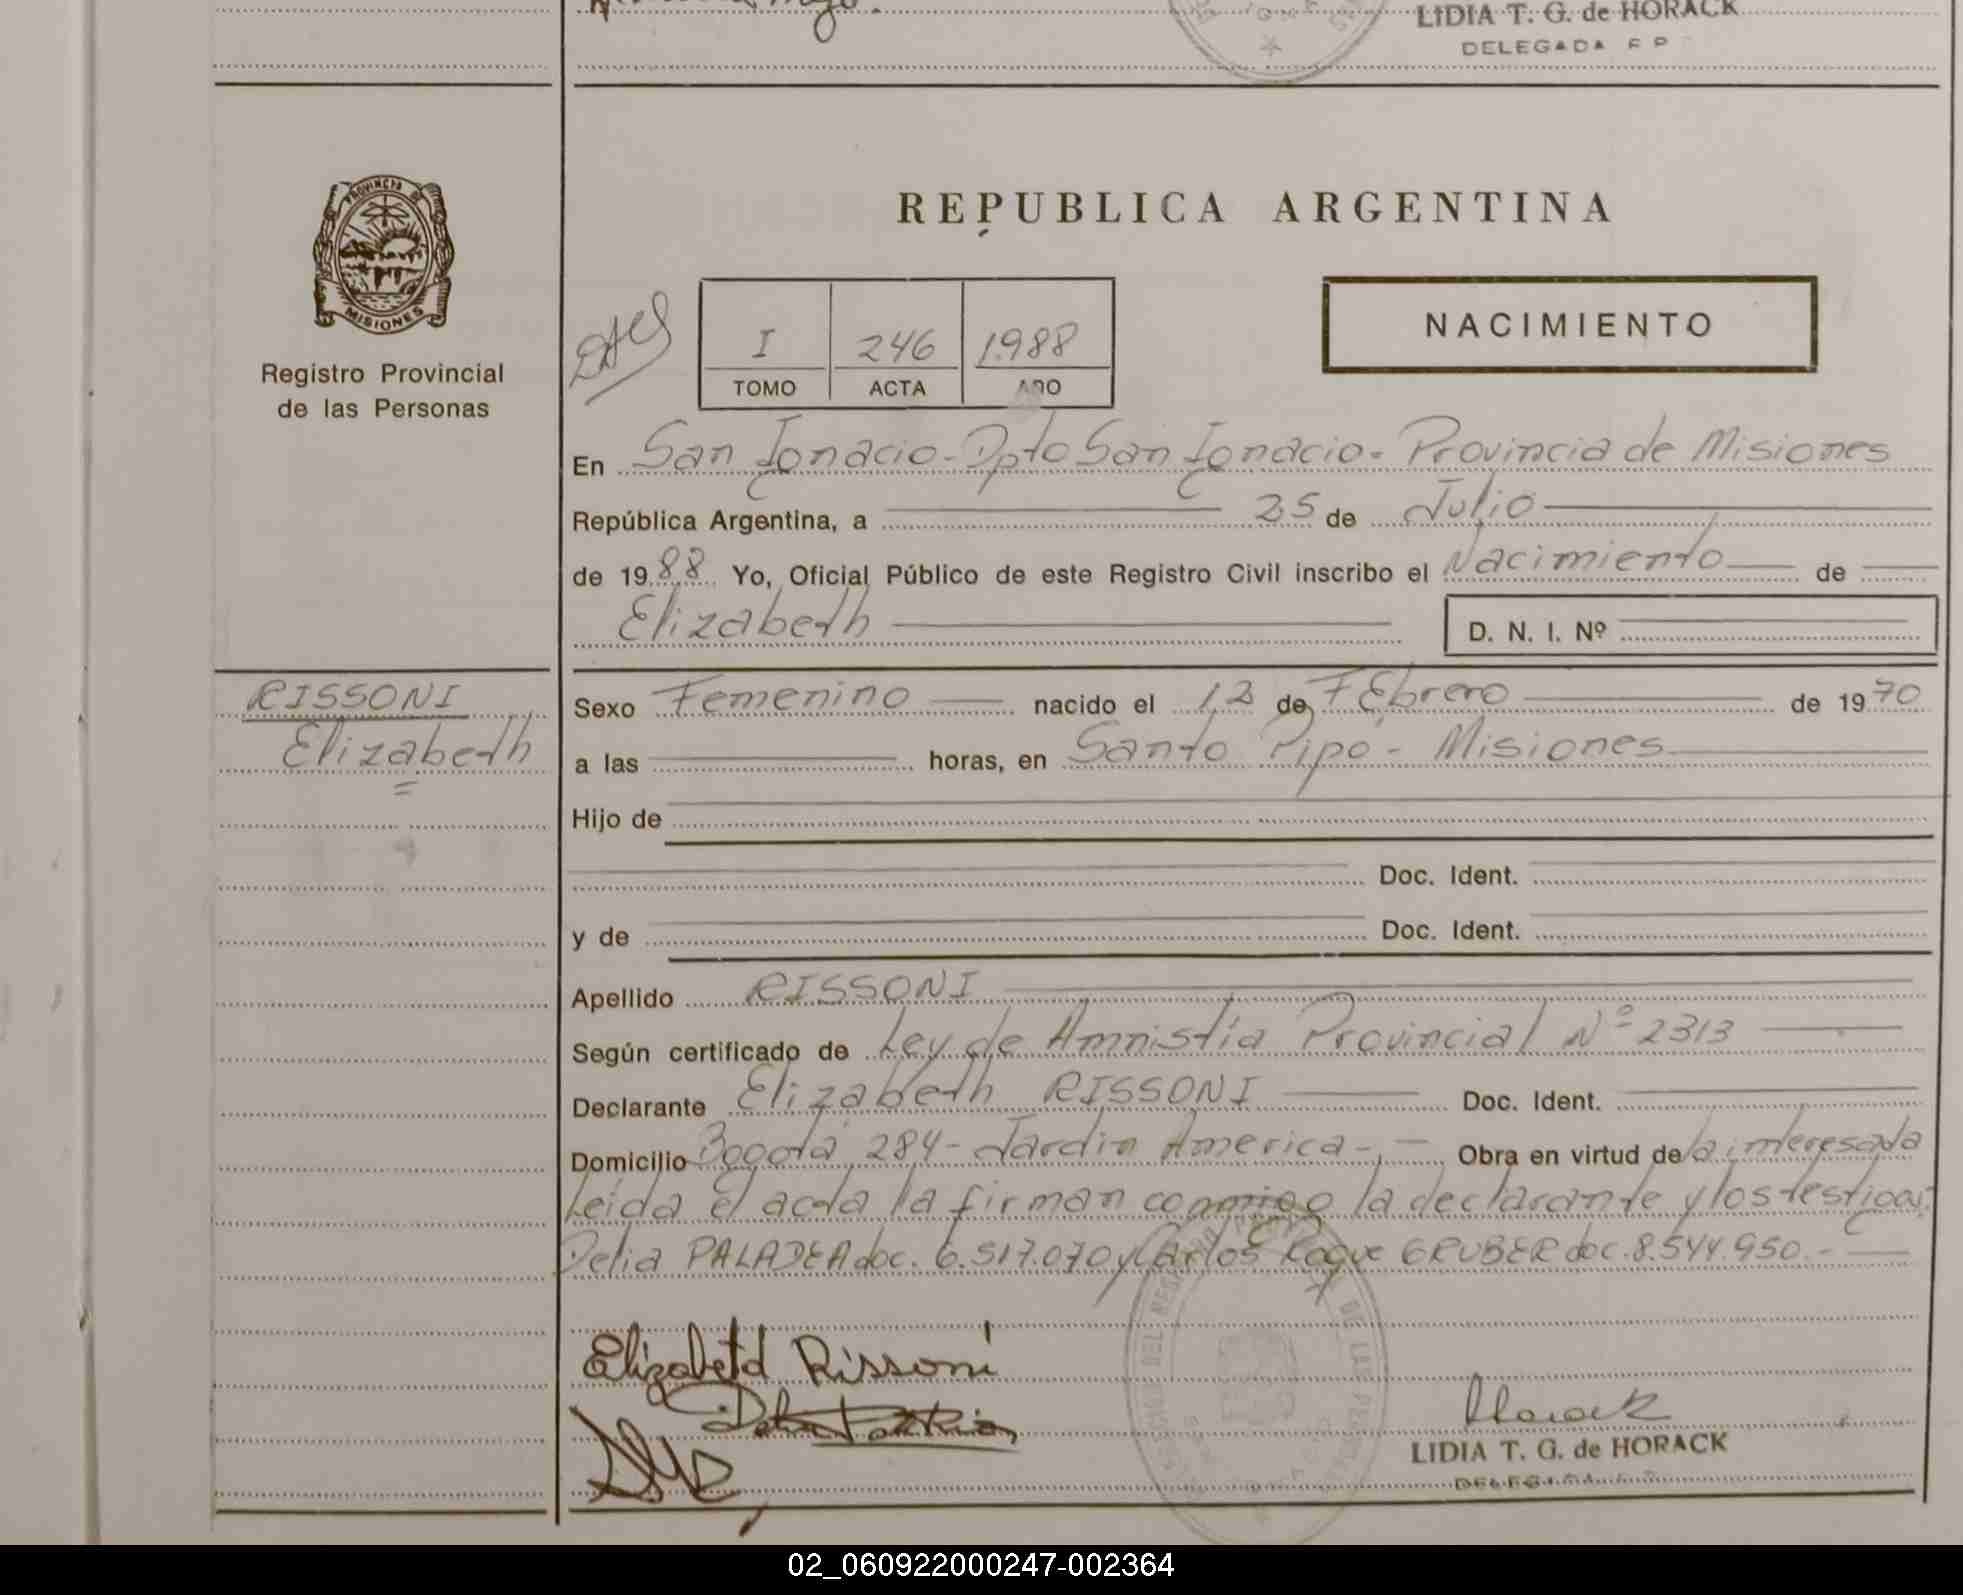 LIDIA T. G. de HORACK
DELEGADA
PROVINCIA DE
MISIONES
Registro Provincial
de las Personas
REPUBLICA ARGENTINA
NACIMIENTO
I 246 1988
TOMO ACTA AÑO
En San Ignacio - Dpto San Ignacio - Provincia de Misiones
República Argentina, a 25 de Julio
de 1988 Yo, Oficial Público de este Registro Civil inscribo el Nacimiento de
Elizabeth D. N. I. Nº
RISSONI
Elizabeth
Sexo Femenino nacido el 12 de FEbrero de 1970
a las horas, en Santo Pipó - Misiones
Hijo de
Doc. Ident.
y de Doc. Ident.
Apellido RISSONI
Según certificado de Ley de Amnistía Provincial Nº 2313
Declarante Elizabeth RISSONI Doc. Ident.
Domicilio Bogotá 284 - Jardin America -, Obra en virtud de la interesada
Leida el acta la firman conmigo la declarante y los testigos:
Delia PALADEA doc. 6.517.070 y Carlos Roque GRUBER doc. 8.544.950.-
Elizabetd Rissoni
Horack
LIDIA T. G. de HORACK
02_060922000247-002364